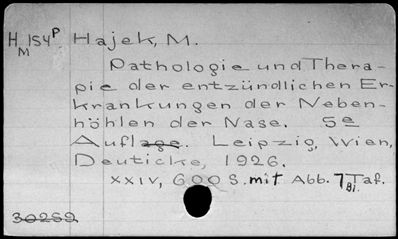 H M 154 P Hajek, M.
Pathologie und Thera-
pie der entzündlichen Er-
krankungen der Neben-
höhlen der Nase. 5e
Auflage. Leipzig, Wien,
Deuticke, 1926.
XXIV, 600 S. mit Abb. 7 Taf.
30259